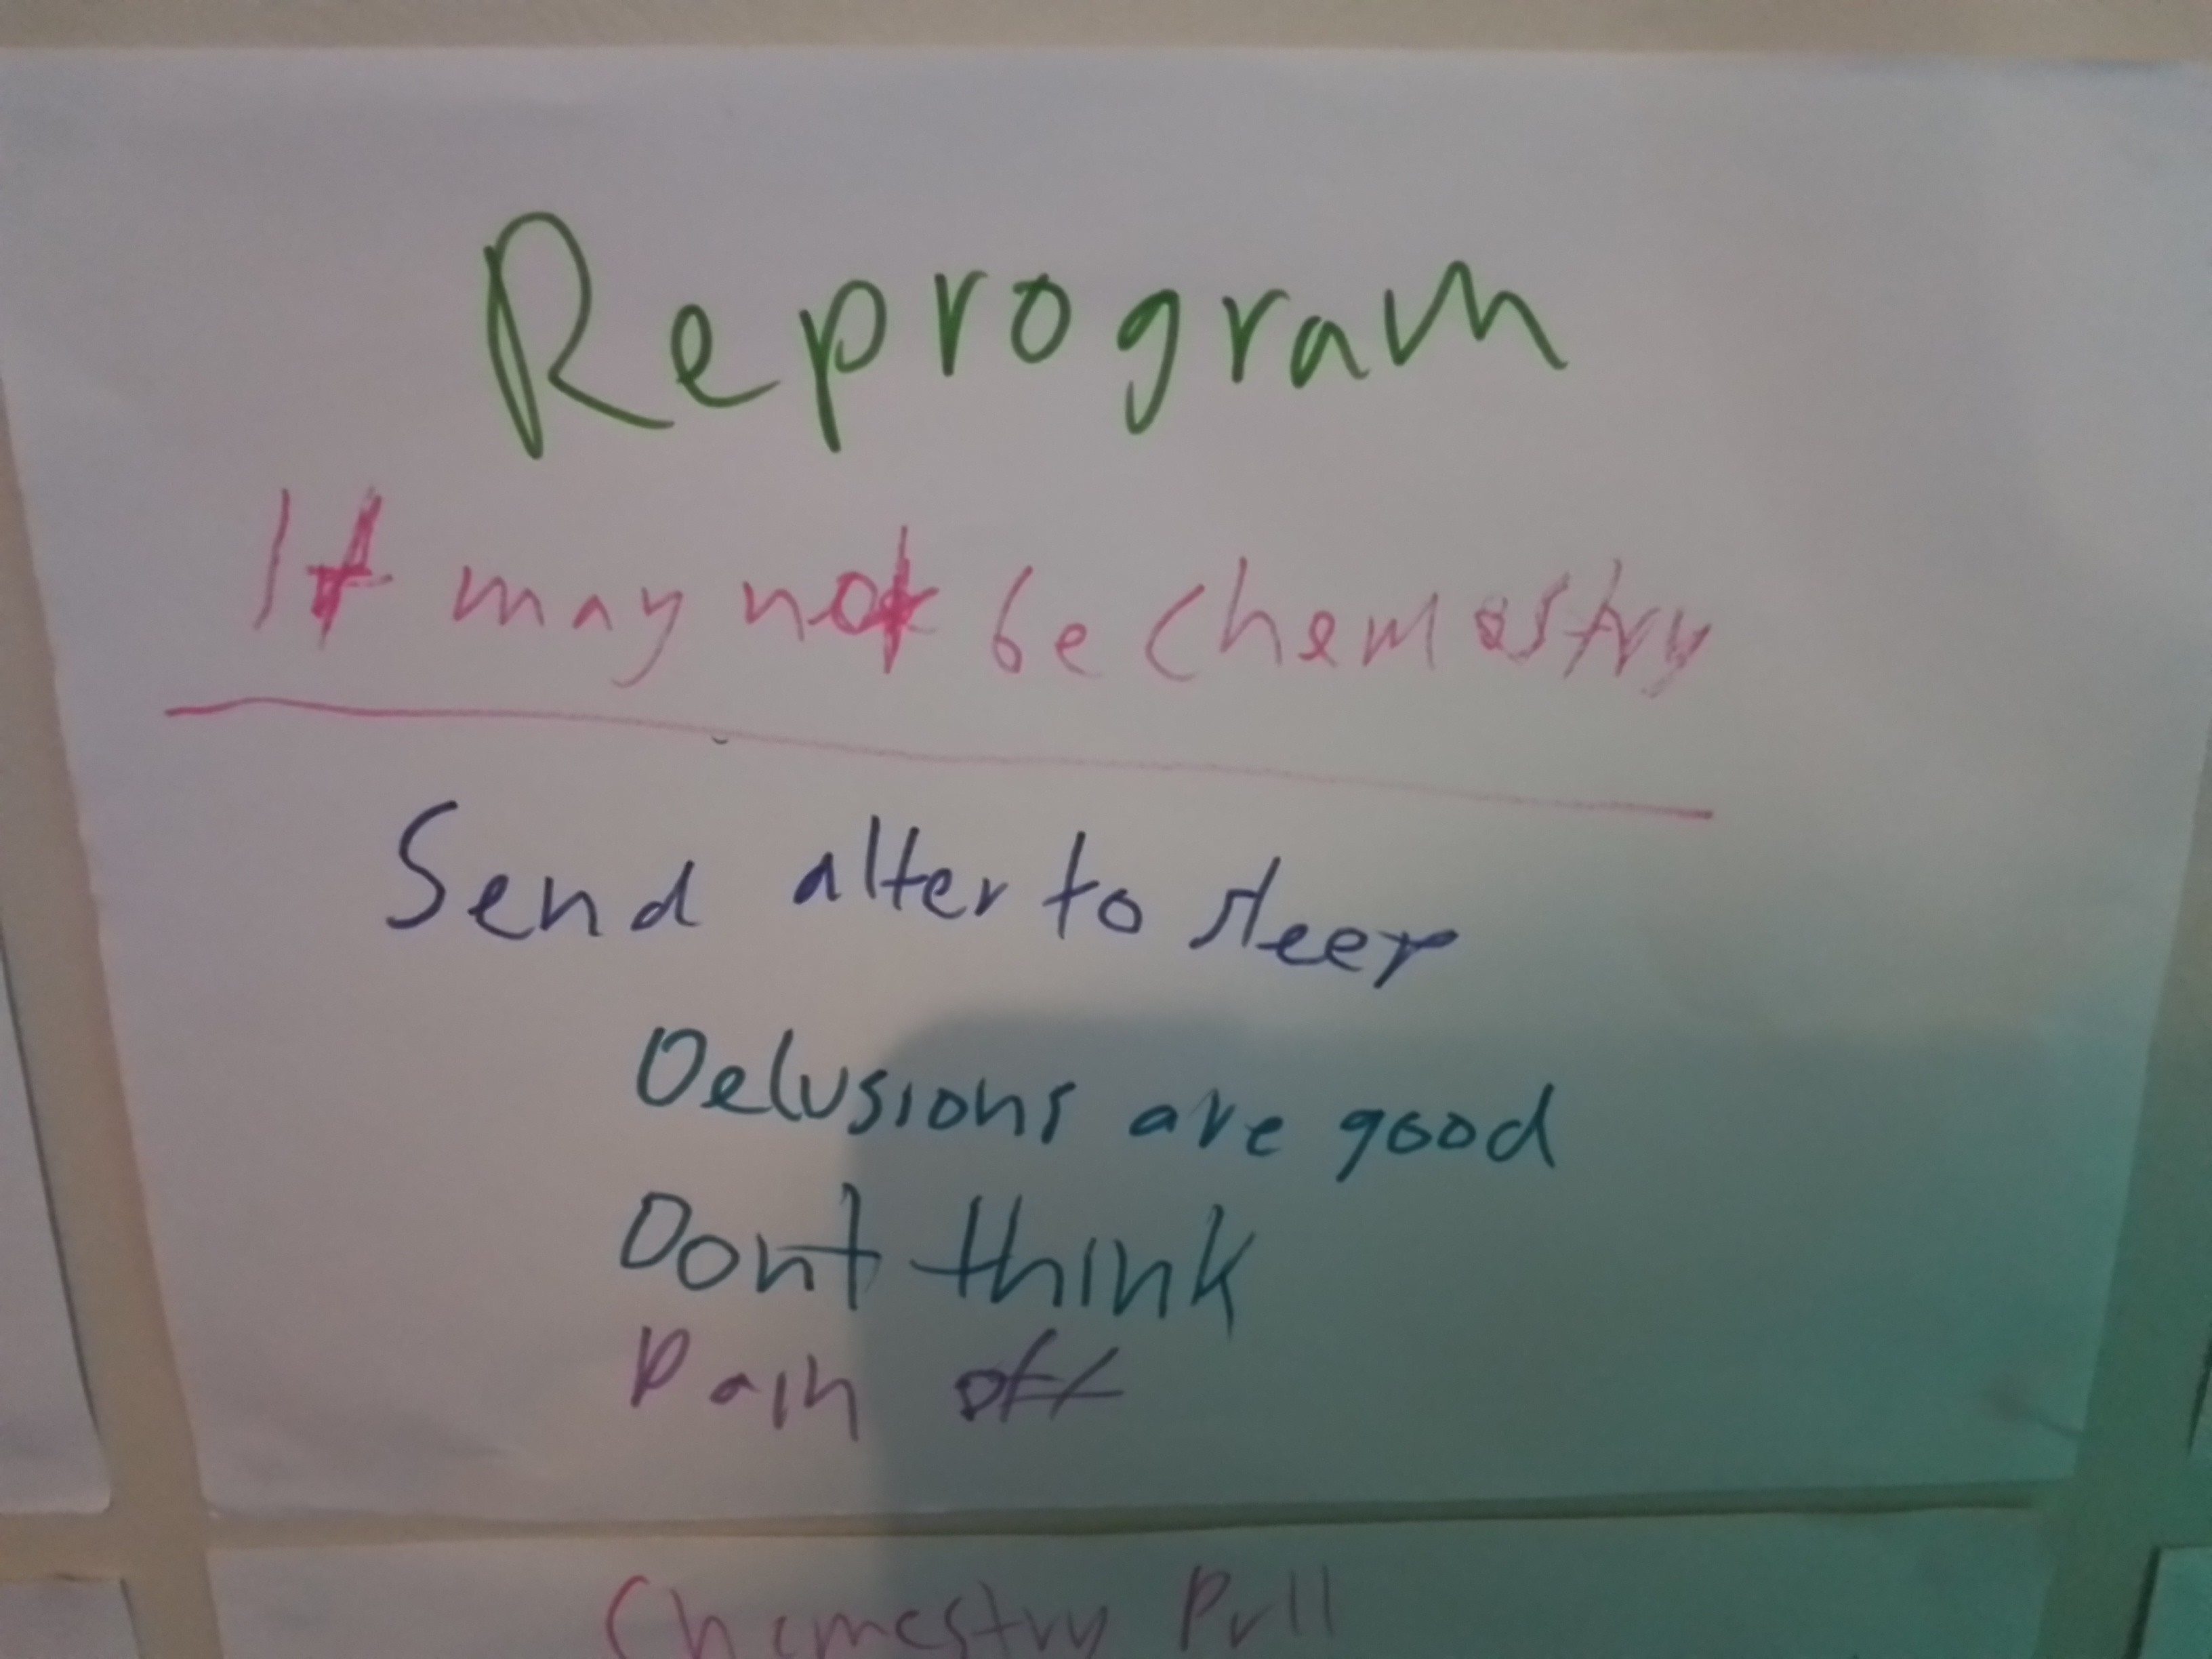 Reprogram
It may not be chemestry
Send alter to sleep
Delusions are good
Dont think
Pain off
Chemestry Pull